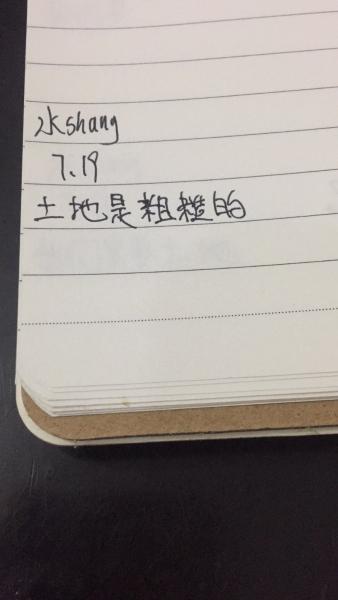 zkshang
7.19
土地是粗糙的